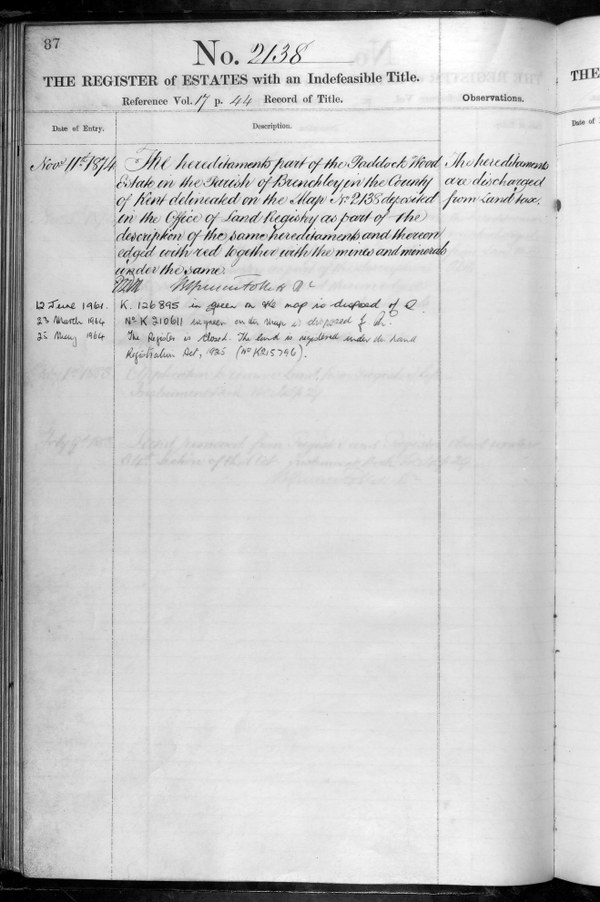 87
No. 2138
THE REGISTER of ESTATES with an Indefeasible Title.
Reference Vol. 17 p. 44 Record of Title.
Observations.
Date of Entry.
Description.
Novr 11th 1874
The hereditaments part of the Paddock Wood
Estate in the Parish of Brenchley in the County
of Kent delineated on the Map No 2138 deposited
in the Office of Land Registry as part of the
description of the same hereditaments and thereon
edged with red together with the mines and minerals
under the same
The hereditaments
are discharged
from Land tax.
12 June 1961. K. 126895 in green on the map is disposed of
23 March 1964 No K 210611 in green on the map is disposed of
25 May 1964 The Register is closed. The land is registered under the Land
Registration Act, 1925 (No K215796).
THE
Date of